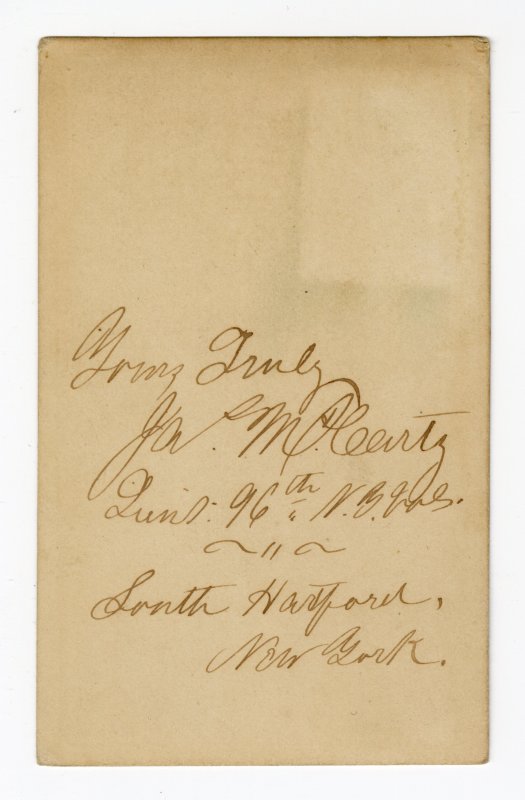 Yours Truly
Jas. McCarty
Lieut. 96th N.Y. Vols.
South Hartford,
New York.